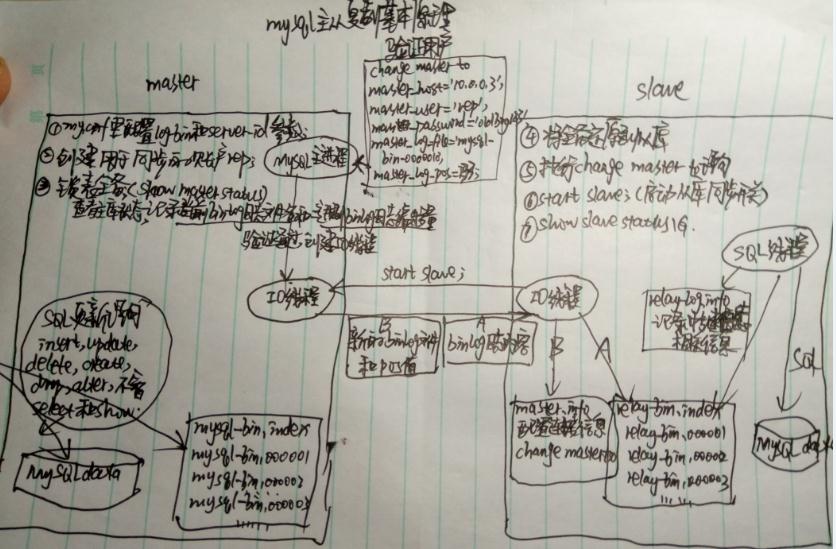 mysql主从复制基本原理
验证用户
master
slave
change master to
master_host='10.0.0.3',
master_user='rep',
master_log_file='mysql-
bin.000013',
master_log_pos=
①my.cnf里配置log-bin和server-id参数;
②创建用于同步的账户rep;
③锁表全备(show master status)
查看主库状态,记录当前binlog日志文件名和
验证通过,创建IO线程
MySQL主进程
④将全备还原到从库
⑤执行change master to语句
⑥start slave;(启动从库同步开关)
⑦show slave status\G.
SQL线程
start slave;
IO线程
IO线程
relay-log.info
SQL更新语句
insert,update,
delete,create,
drop,alter,不含
select和show.
B
新的binlog文件
和pos值
A
binlog日志内容
B
A
SQL
mysql-bin.index
mysql-bin.000001
mysql-bin.000002
mysql-bin.000003
......
MySQL data
master.info
配置连接信息
change master to
relay-bin.index
relay-bin.000001
relay-bin.000002
relay-bin.000003
......
MySQL data